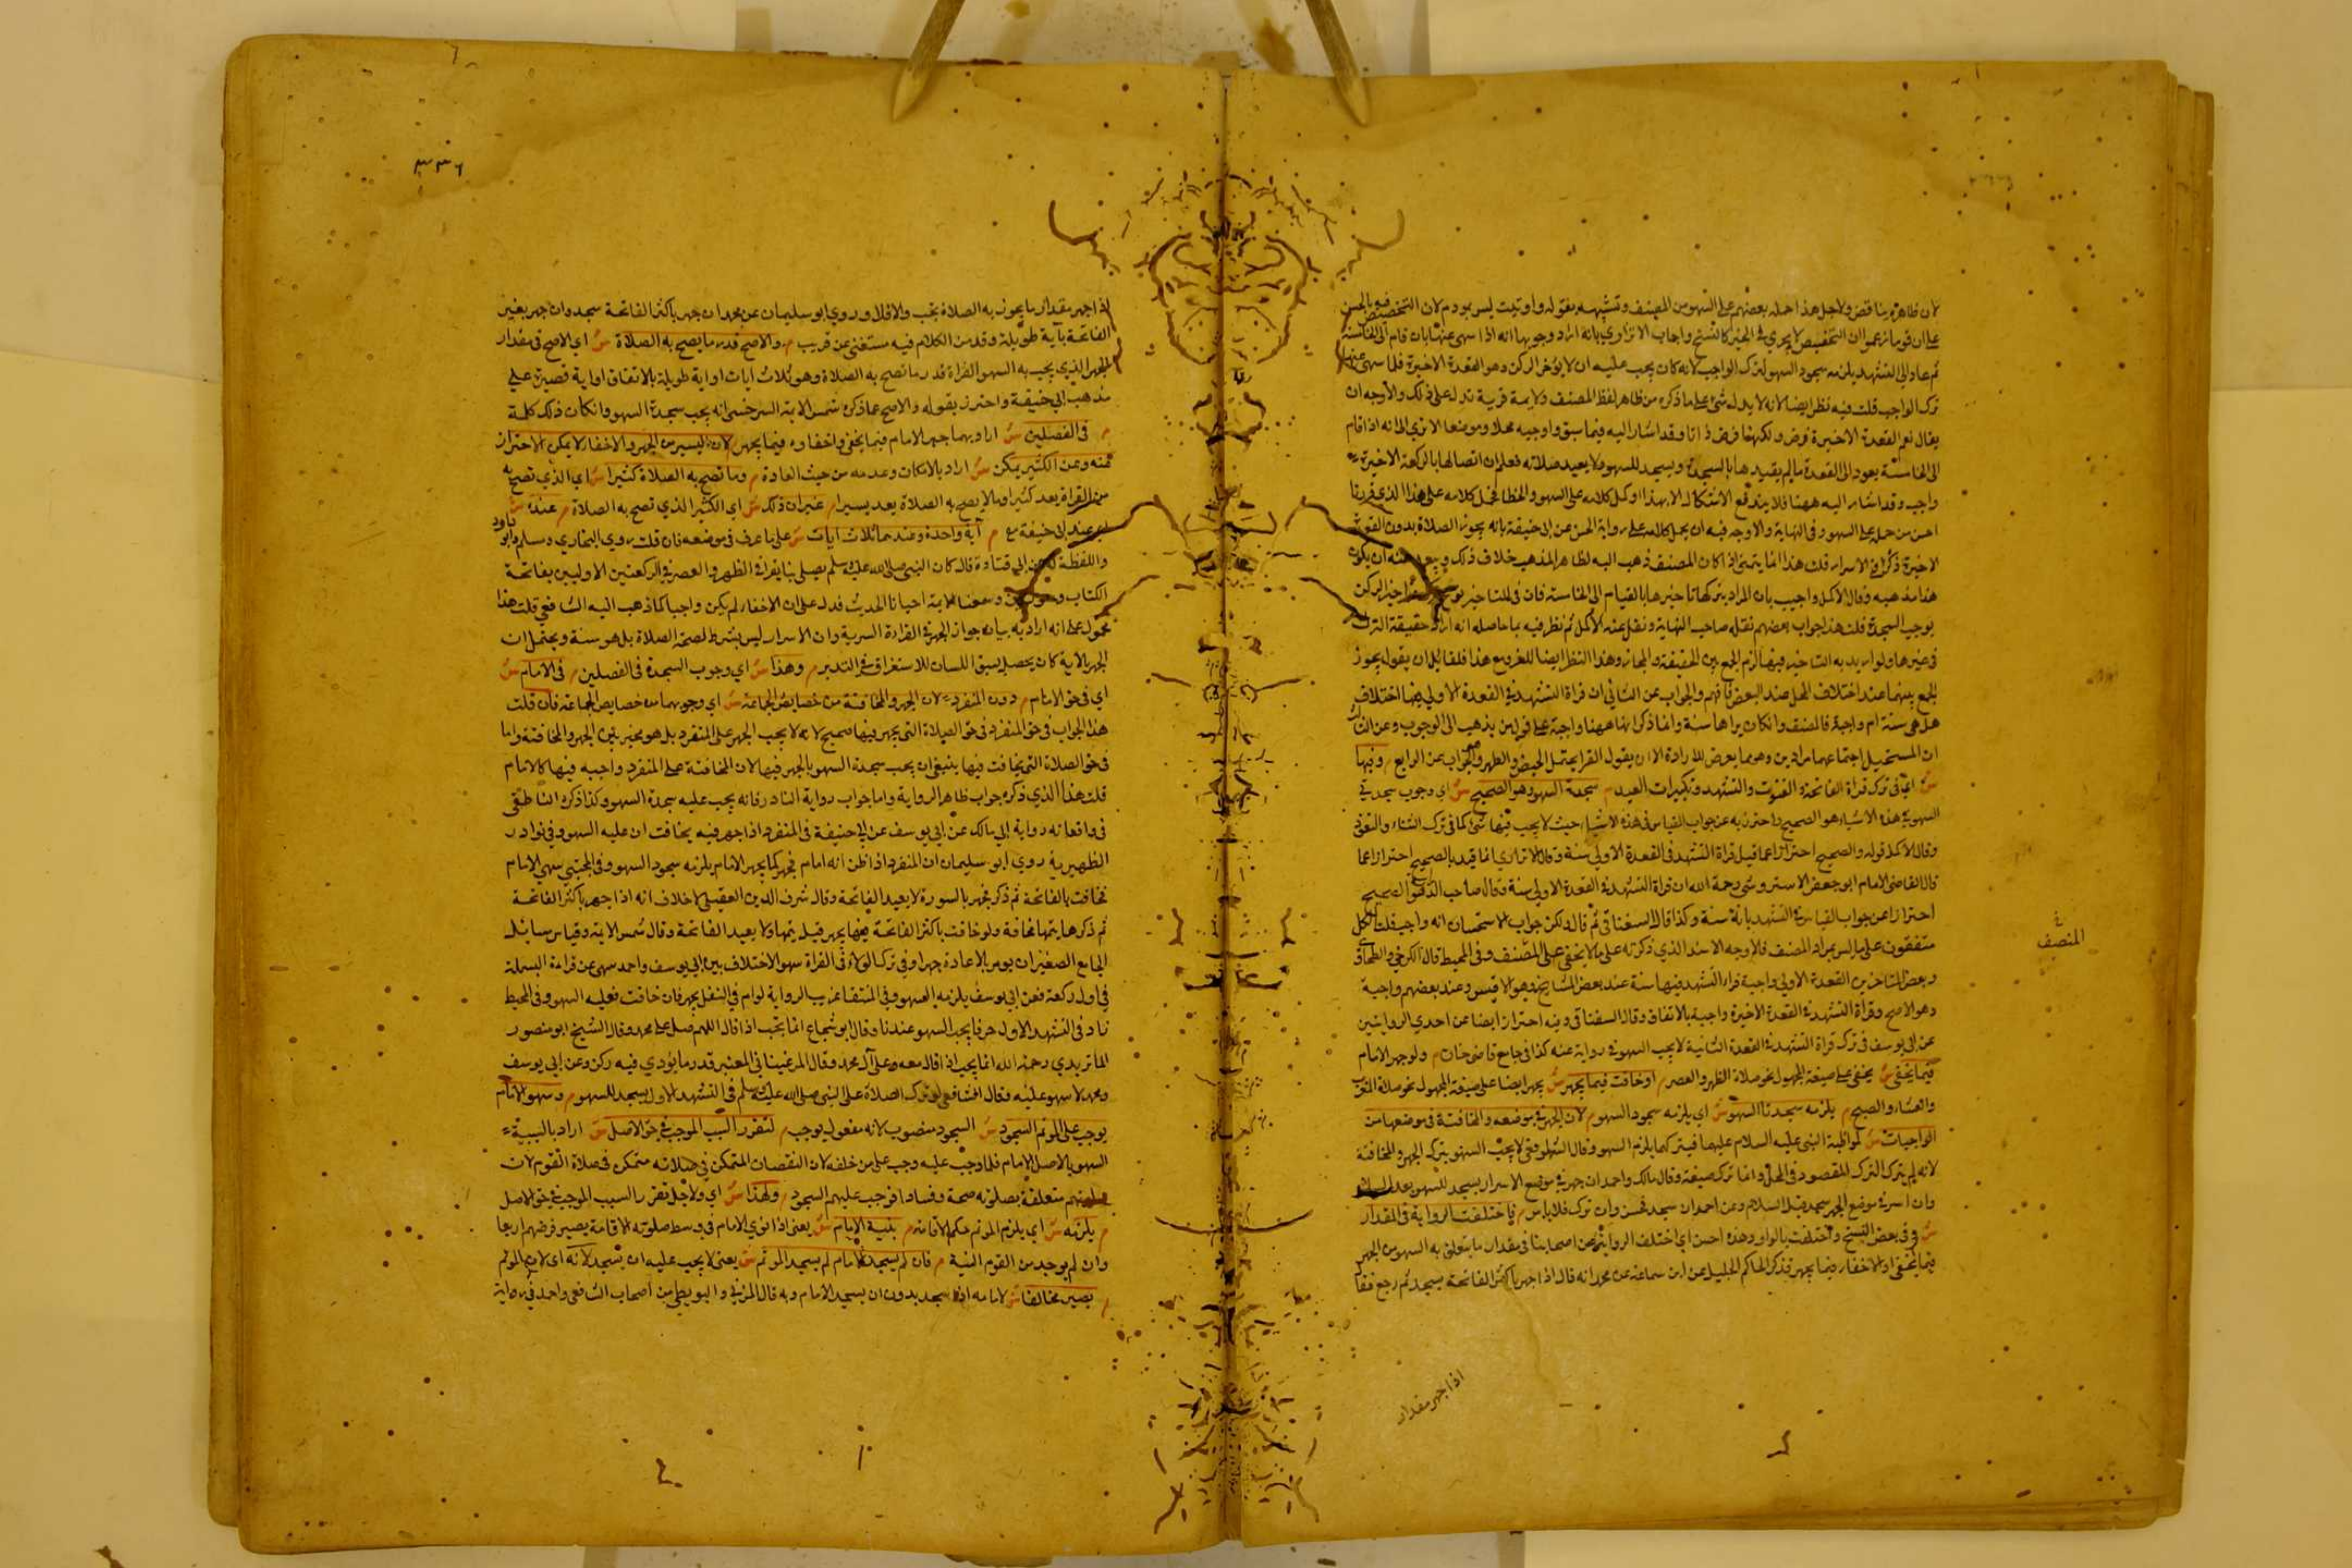 لان ظاهره يناقض ولاجل هذا حمله بعضهم على السهو من المصنف وتشبثه بقوله واو تيت ليس بمود م لان التخصيص فيه بالجنس
على ان قوما زعموا ان التخصيص لا يجري في الخبر كالنسخ واجاب الاترازي بانه اراد وجوبها انه اذا سهى عنها بان قام الى الخامسة
ثم عاد الى التشهد يلزمه سجود السهو لترك الواجب لانه كان يجب عليه ان لا يؤخر الركن وهو القعدة الاخيرة فلما سهى عنها
ترك الواجب قلت فيه نظر ايضا لانه لا يدل شئ على ما ذكره من ظاهر لفظ المصنف ولا ثمة قرينة تدل على ذلك والاوجه ان
يقال نعم القعدة الاخيرة فرض ولكنها فرض ذاتا وقد اشار اليه فيما سبق واوجبه محلا وموضعا الا ترى الى انه اذا قام
الى الخامسة يعود الى القعدة ما لم يقيدها بالسجدة ويسجد للسهو ولا يعيد صلاته فعلم ان اتصالها بالركعة الاخيرة
واجب وقد اشار اليه ههنا فلا يندفع الاشكال الا بهذا او كل كلامه على السهو والخطا كل كلامه على هذا الذي قررنا
احسن من حمله على السهو وفي النهاية والاوجه فيه ان يحمل كلامه على رواية الحسن عن ابي حنيفة بانه يجوز الصلاة بدون القعدة
الاخيرة ذكره في الاسرار قلت هذا انما يتمشى اذا كان المصنف ذهب اليه لظاهر المذهب خلاف ذلك ويبعد منه ان يكون
هذا مذهبه وقال الاكمل واجيب بان المراد بتركها تاخيرها بالقيام الى الخامسة فان في التاخير نوع ترك وتاخير الركن
يوجب السجدة قلت هذا جواب بعضهم نقله صاحب النهاية ونقل عنه الاكمل ثم نظر فيه بما حاصله انه اراد حقيقة الترك
في غيرها ولو اريد به التاخير فيها لزم الجمع بين الحقيقة والمجاز وهذا النظر ايضا للغير ومع هذا فلقائل ان يقول يجوز
الجمع بينهما عند اختلاف المحل عند البعض فافهم والجواب عن الثاني ان قراة التشهد في القعدة الاولى فيها اختلاف
هل هي سنة ام واجبة فالمصنف وان كان يراها سنة وانما ذكر انها ههنا واجبة على قول من يذهب الى الوجوب وعن الثالث
ان المستحيل اجتماعهما مرادين وهو ما تعرض للارادة الا ان يقول القرا يحتمل الحيض والطهر والجواب عن الرابع م وفيها
ش اي في ترك قراة الفاتحة والقنوت والتشهد وتكبيرات العيد م سجدة السهو وهو الصحيح ش اي وجوب سجدتي
السهو في هذه الاشياء هو الصحيح واحترز به عن جواب القياس في هذه الاشياء حيث لا يجب فيها شئ كما في ترك الثناء والتعوذ
وقال الاكمل قوله والصحيح احتراز عما قيل قراة التشهد في القعدة الاولى سنة وقال الاترازي انما قيد بالصحيح احترازا عما
قال القاضي الامام ابو جعفر الاستروشني رحمة الله ان قراة التشهد في القعدة الاولى سنة فقال صاحب الدراية قوله هو الصحيح
احترازا عن جواب القياس في التشهد بانه سنة وكذا قال السغناقي ثم قال ولكن جواب الاستحسان انه واجب قلت الكل
متفقون على ما ليس بمراد المصنف فالاوجه الاسد الذي ذكرته على ما لا يخفى على المصنف وفي المحيط قال الكرخي والطحاوي
وبعض المتاخرين القعدة الاولى واجبة قراءة التشهد فيها سنة عند بعض المشايخ وهو الاقيس وعند بعضهم واجبة
وهو الاصح وقراة التشهد في القعدة الاخيرة واجبة بالاتفاق وقال السغناقي وفيه احتراز ايضا عن احدي الروايتين
عن ابي يوسف في ترك قراة التشهد في القعدة الثانية لا يجب السهو في رواية عنه كذا في جامع قاضي خان م ولو جهر الامام
فيما يخفى ش يخفى على صيغة المجهول نحو صلاة الظهر والعصر م او خافت فيما يجهر ش يجهر ايضا على صيغة المجهول نحو صلاة المغرب
والعشاء والصبح م يلزمه سجدتا السهو ش اي يلزمه سجود السهو م لان الجهر في موضعه والمخافتة في موضعها من
الواجبات ش لمواظبة النبي عليه السلام عليهما فبتركهما يلزم السهو وقال الشافعي لا يجب السهو بترك الجهر والمخافتة
لانه لم يترك الترك المقصود في المحل وانما ترك صيغة وقال مالك واحمد ان جهر في موضع الاسرار يسجد للسهو بعد السلام
وان اسر في موضع الجهر سجد قبل السلام وعن احمد ان سجد فحسن وان ترك فلا باس م واختلفت الرواية في المقدار
ش وفي بعض النسخ واختلفت بالواو وهذه احسن اي اختلف الرواية عن اصحابنا في مقدار ما يتعلق به السهو من الجهر
فيما يخفى او الاخفاء فيما يجهر فذكر الحاكم الجليل عن ابن سماعة عن محمد انه قال اذا جهر باكثر الفاتحة يسجد ثم رجع فقال
المنصف
اذا جهر مقدار
٣٣٦
اذا جهر مقدار ما يجوز به الصلاة يجب والا فلا وروي ابو سليمان عن محمد ان جهر باكثر الفاتحة سجد وان جهر بغير
الفاتحة بآية طويلة وقد مر الكلام فيه مستقصى عن قريب م والاصح قدر ما يصح به الصلاة ش اي الاصح في مقدار
الجهر الذي يجب به السهو القراة قدر ما تصح به الصلاة وهو ثلاث ايات او اية طويلة بالاتفاق او اية قصيرة على
مذهب ابي حنيفة واحترز بقوله والاصح عما ذكره شمس الايمة السرخسي انه يجب سجدة السهو وان كان ذلك كلمة
م في الفصلين ش اراد بهما جهر الامام فيما يخفى واخفاوه فيما يجهر لان اليسير من الجهر والاخفاء لا يمكن الاحتراز
عنه وعن الكثير يمكن ش اراد بالامكان وعدمه من حيث العادة م وما تصح به الصلاة كثير ش اي الذي تصح به
من القراة يعد كثيرا وما لا يصح به الصلاة يعد يسيرا م غير ان ذلك ش اي الكثير الذي تصح به الصلاة م عنده ش
اي عند ابي حنيفة م آية واحدة وعندهما ثلاث ايات ش على ما عرف في موضعه فان قلت روي البخاري ومسلم وابو داود
واللفظة له عن ابي قتادة قال كان النبي صلى الله عليه وسلم يصلي بنا يقرا في الظهر والعصر في الركعتين الاوليين بفاتحة
الكتاب وسورتين ويسمعنا الاية احيانا الحديث فدل على ان الاخفاء لم يكن واجبا كما ذهب اليه الشافعي قلت هذا
محمول على انه اراد به بيان جواز الجهر في القراءة السرية وان الاسرار ليس بشرط لصحة الصلاة بل هو سنة ويحتمل ان
الجهر بالاية كان يحصل بسبق اللسان للاستغراق في التدبر م وهذا ش اي وجوب السجدة في الفصلين م في الامام ش
اي في حق الامام م دون المنفرد لان الجهر والمخافتة من خصايص الجماعة ش اي وجوبهما من خصايص الجماعة فان قلت
هذا الجواب في حق المنفرد في حق الصلاة التي يجهر فيها صحيح لانه لا يجب الجهر على المنفرد بل هو مخير بين الجهر والمخافتة واما
في حق الصلاة التي يخافت فيها ينبغي ان يجب سجدة السهو بالجهر فيها لان المخافتة على المنفرد واجبه فيها كالامام
قلت هذا الذي ذكره جواب ظاهر الرواية واما جواب رواية النادر فانه يجب عليه سجدة السهو وكذا ذكره الناطفي
في واقعاته رواية ابي مالك عن ابي يوسف عن ابي حنيفة في المنفرد اذا جهر فيه يخافت ان عليه السهو وفي نوادر
الظهيرية روي ابو سليمان ان المنفرد اذا ظن انه امام فجهر كما يجهر الامام يلزمه سجود السهو وفي المجتبى سهي الامام
فخافت بالفاتحة ثم ذكر يجهر بالسورة لا يعيد الفاتحة وقال شرف الدين العقيلي لا خلاف انه اذا جهر باكثر الفاتحة
ثم ذكرها يتمها مخافة ولو خافت باكثر الفاتحة فيما يجهر قيل يتمها ولا يعيد الفاتحة وقال شمس الايمة وقياس مسائل
الجامع الصغير ان يومر بالاعادة جهرا وفي ترك الولاء في القراة سهوا الاختلاف بين ابي يوسف واحمد سهى عن قراءة البسملة
في اول ركعة فعن ابي يوسف يلزمه السهو وفي المنتقا غريب الرواية لو ام في النفل يجهر فان خافت فعليه السهو وفي المحيط
زاد في التشهد الاول حرفا يجب السهو عندنا وقال ابو شجاع انما يجب اذا قال اللهم صل على محمد وقال الشيخ ابو منصور
الماتريدي رحمه الله انما يجب اذا قال معه وعلى آل محمد وقال المرغيناني المعتبر قدر ما يؤدي فيه ركن وعن ابي يوسف
ومحمد لا سهو عليه وقال الشافعي لو ترك الصلاة على النبي صلى الله عليه وسلم في التشهد الاول يسجد للسهو م وسهو الامام
يوجب على الموتم السجود ش السجود منصوب لانه مفعول يوجب م لتقرر السبب الموجب في حق الاصل ش اراد بالسبب
السهو بالاصل الامام فلما وجب عليه وجب على من خلفه لان النقصان المتمكن في صلاته متمكن في صلاة القوم لان
صلاتهم متعلقة بصلوته صحة وفسادا فوجب عليهم السجود م ولهذا ش اي ولاجل تقرر السبب الموجب في حق الاصل
م يلزمه ش اي يلزم الموتم حكم الاقامة م بنية الامام ش يعني اذا نوي الامام في وسط صلوته الاقامة يصير فرضهم اربعا
وان لم يوجد من القوم النية م فان لم يسجد الامام لم يسجد الموتم ش يعني لا يجب عليه ان يسجد لانه اي لان الموتم
م يصير مخالفا ش لامامه اذا سجد بدون ان يسجد الامام وبه قال المزني والبويطي من اصحاب الشافعي واحمد في رواية